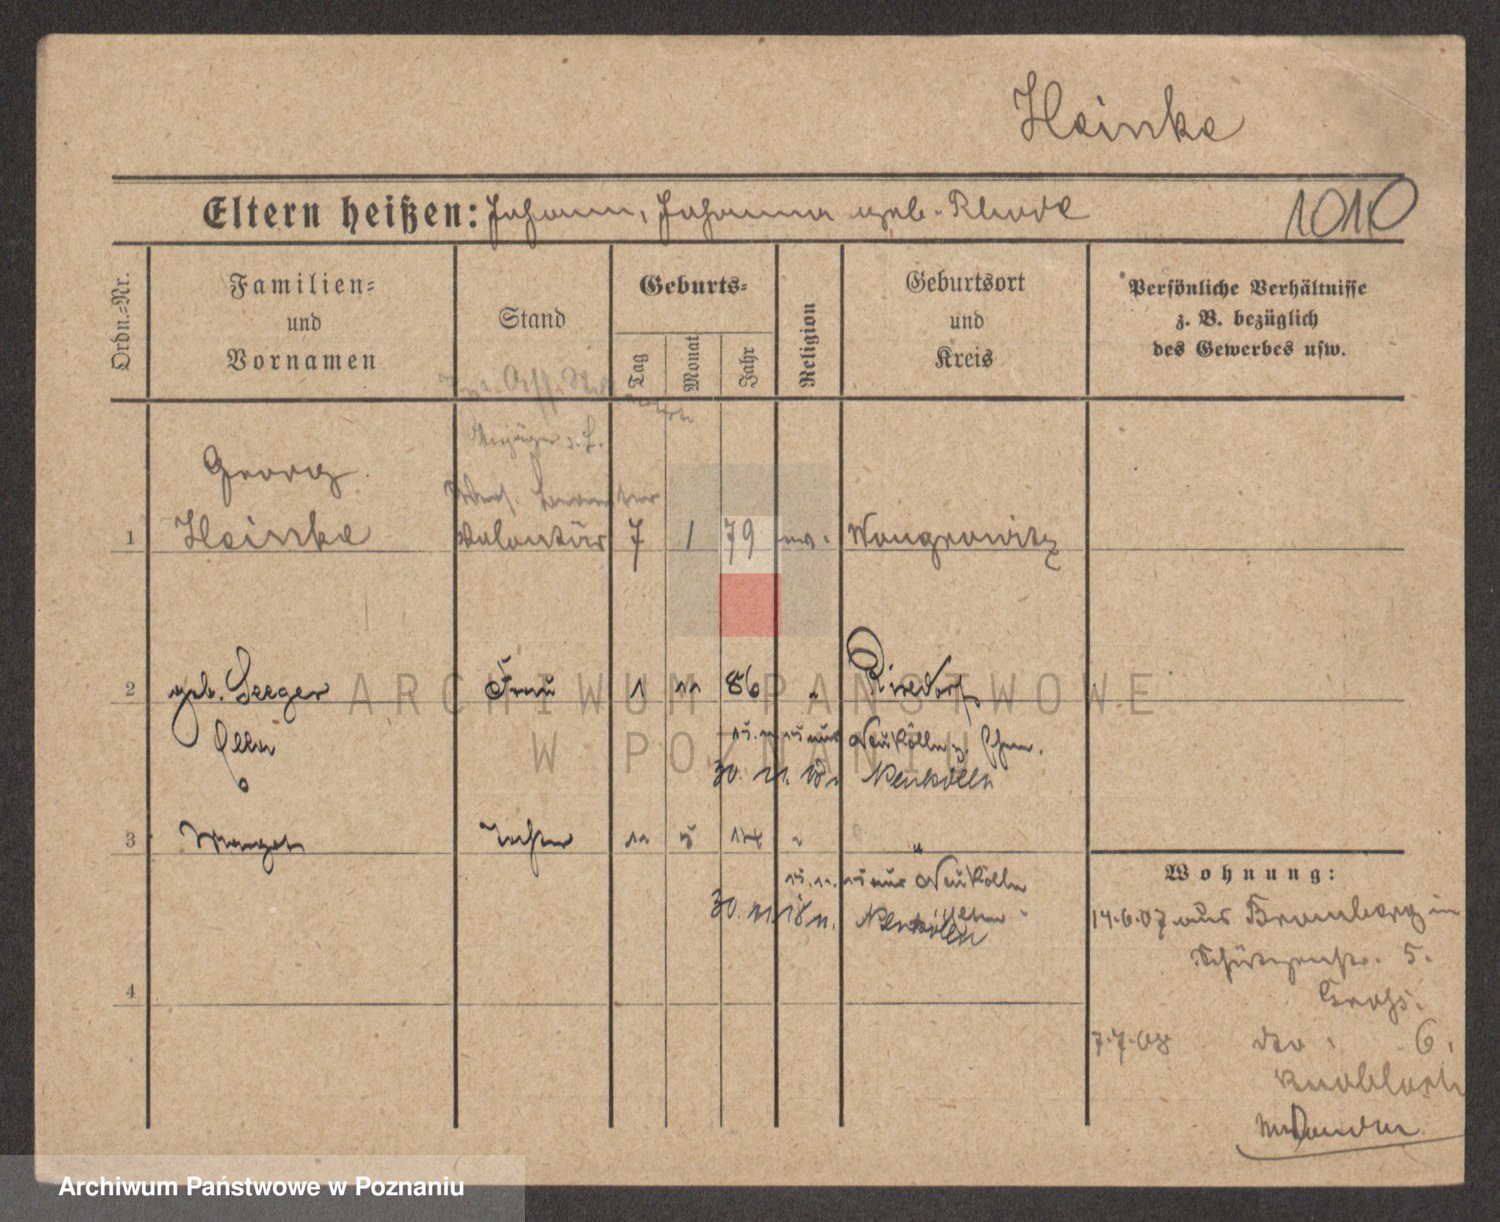 Heinke
Eltern heißen: Johann, Johanna geb. Rhode
1010
Ordn.=Nr.
Familien=
und
Vornamen
Stand
Geburts=
Tag
Monat
Jahr
Religion
Geburtsort
und
Kreis
Persönliche Verhältnisse
z. B. bezüglich
des Gewerbes usw.
Georg
1 Heinke Volontär 7 1 79 ev. Wongrowitz
2 geb. Seeger Frau 1 11 86 " Rixdorf
Elly
Neukölln
30. 11. 18 n. Neukölln
3 Margot Tochter 11 5 14 " "
Neukölln
30. 11. 18 n. Neukölln
4
Wohnung:
14.6.07 aus Bromberg in
Schützenstr. 5.
7.7.08 6.
Knobloch
ARCHIWUM PAŃSTWOWE
W POZNANIU
Archiwum Państwowe w Poznaniu